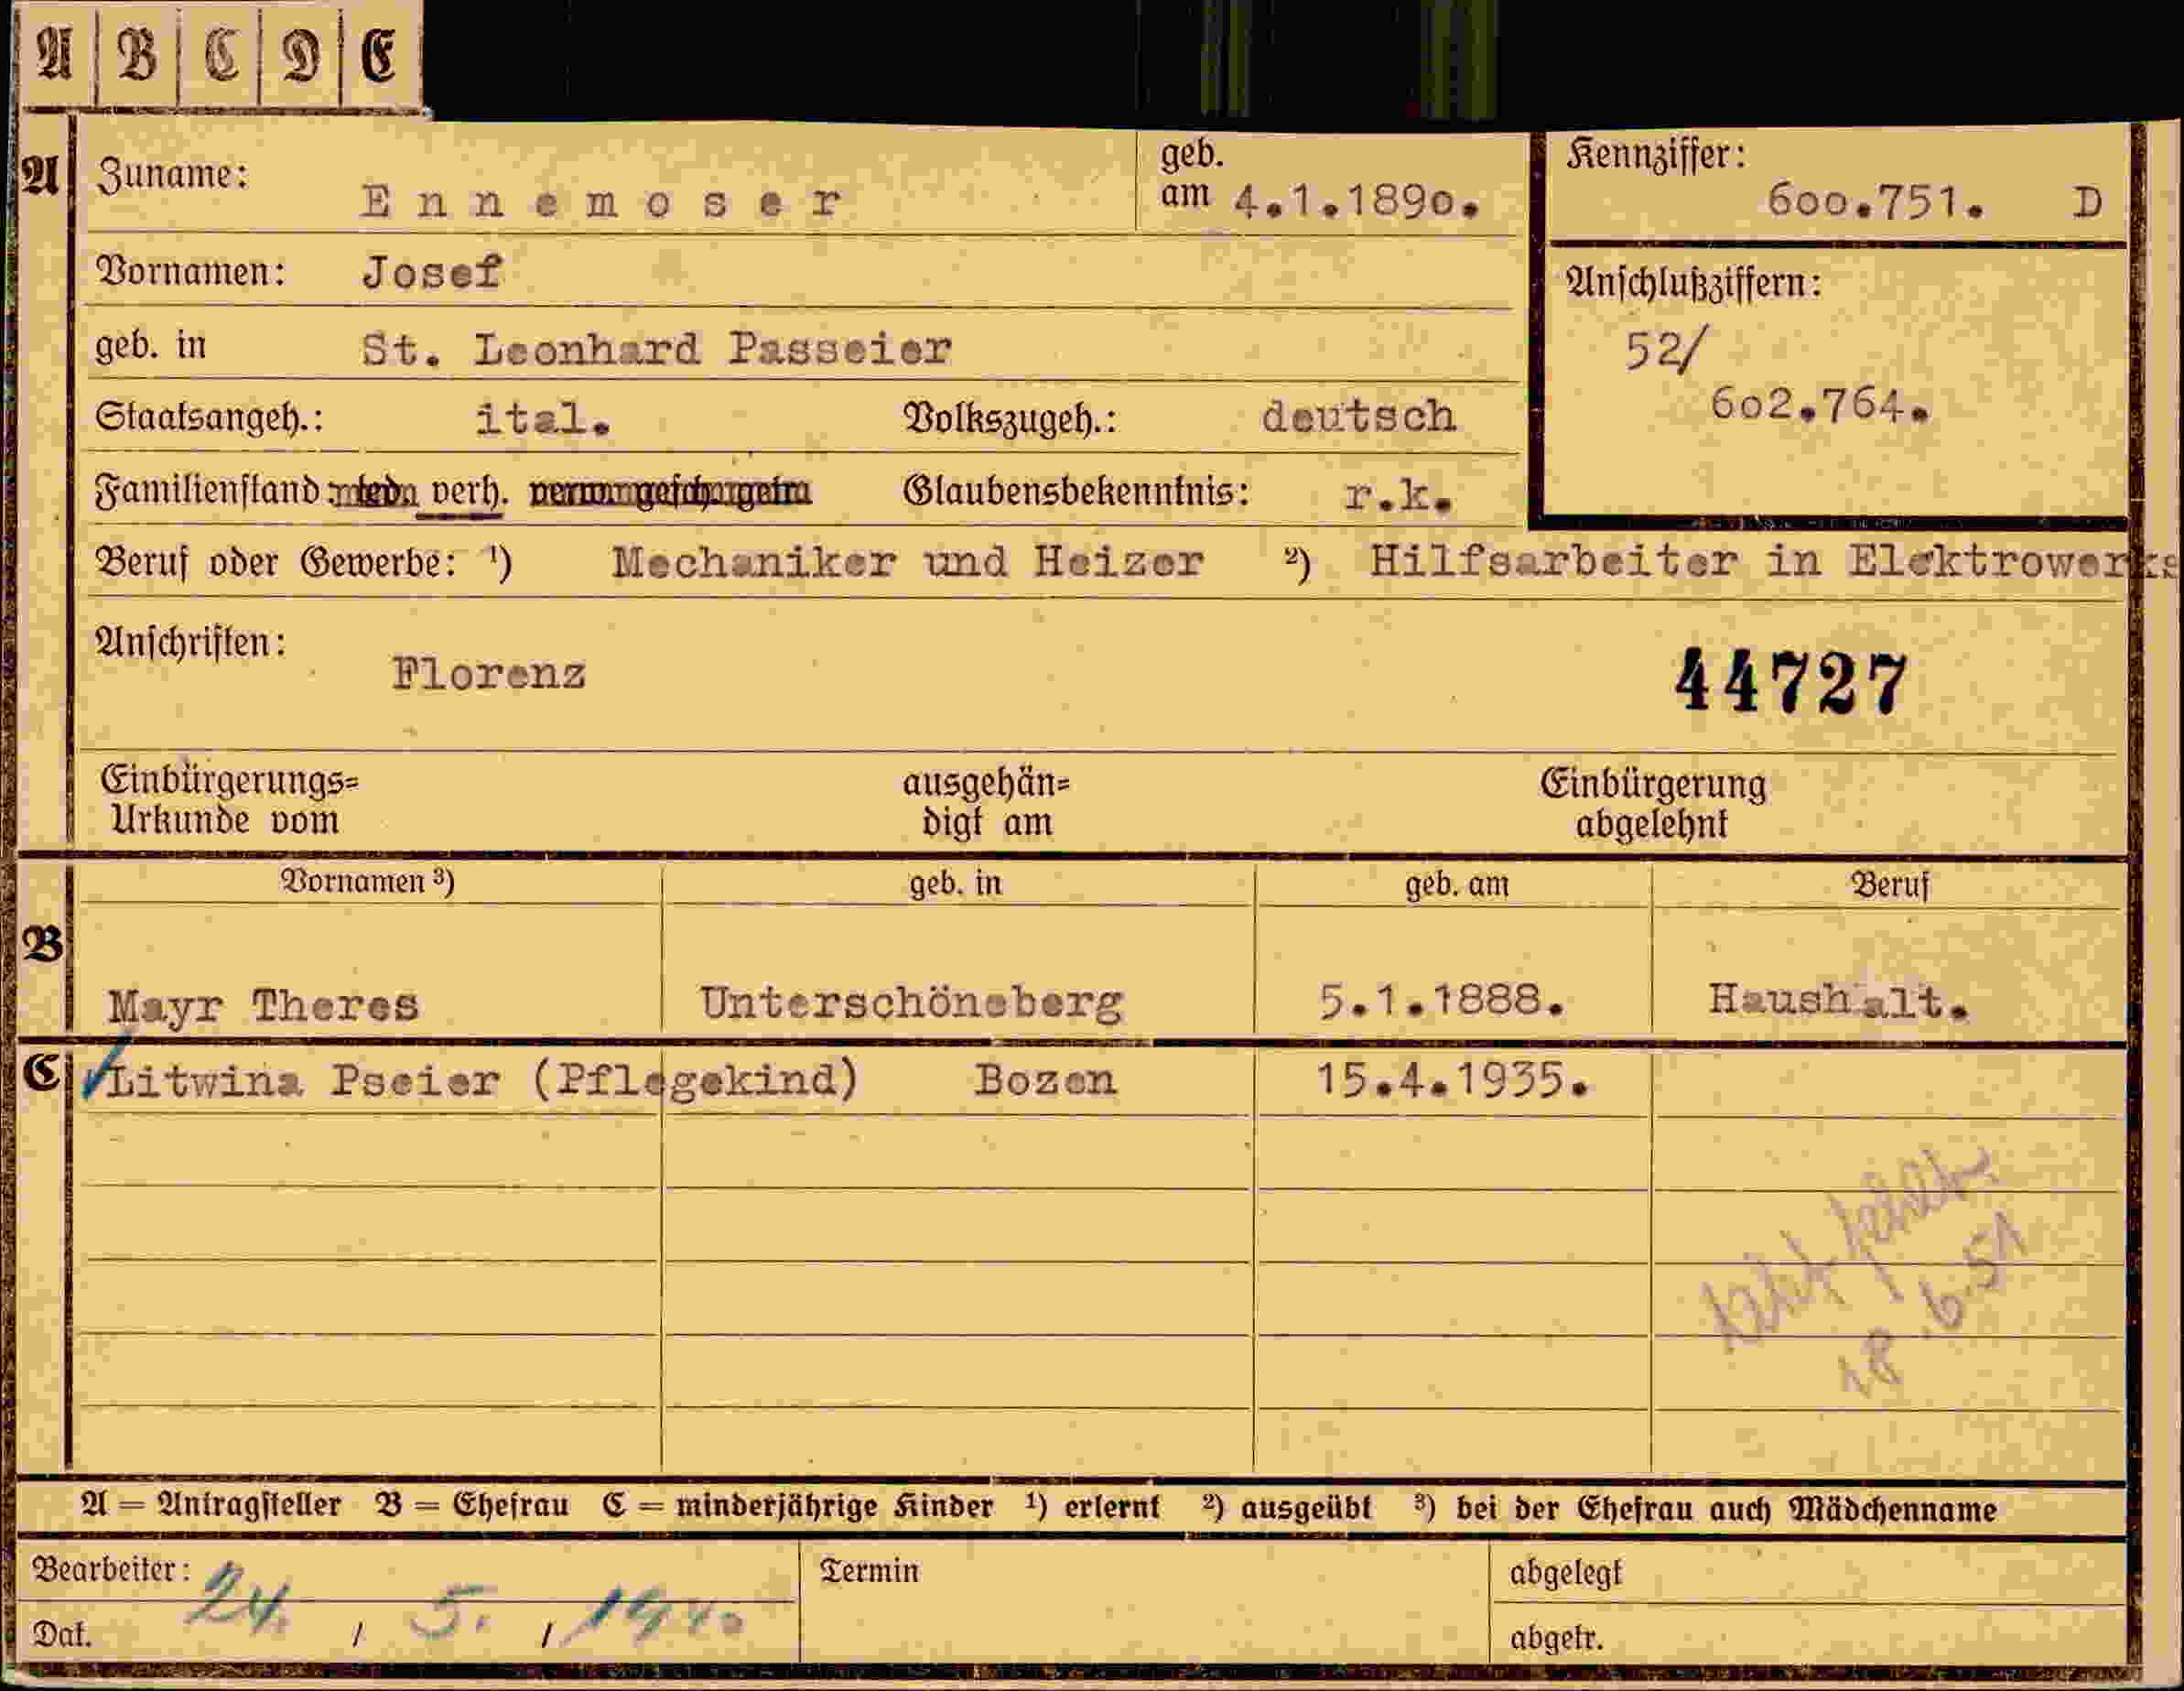 A B C D E
A Zuname: Ennemoser geb. am 4.1.1890. Kennziffer: 600.751. D
Vornamen: Josef Anschlußziffern:
geb. in St. Leonhard Passeier 52/
Staatsangeh.: ital. Volkszugeh.: deutsch 602.764.
Familienstand: verh. Glaubensbekenntnis: r.k.
Beruf oder Gewerbe: ¹) Mechaniker und Heizer ²) Hilfsarbeiter in Elektrowerks
Anschriften: Florenz 44727
Einbürgerungs= ausgehän= Einbürgerung
Urkunde vom digt am abgelehnt
Vornamen ³) geb. in geb. am Beruf
B
Mayr Theres Unterschöneberg 5.1.1888. Haushalt.
C Litwina Pseier (Pflegekind) Bozen 15.4.1935.
18.6.51
A = Antragsteller B = Ehefrau C = minderjährige Kinder ¹) erlernt ²) ausgeübt ³) bei der Ehefrau auch Mädchenname
Bearbeiter: Termin abgelegt
Dat. 24. / 5. / 1940 abgetr.